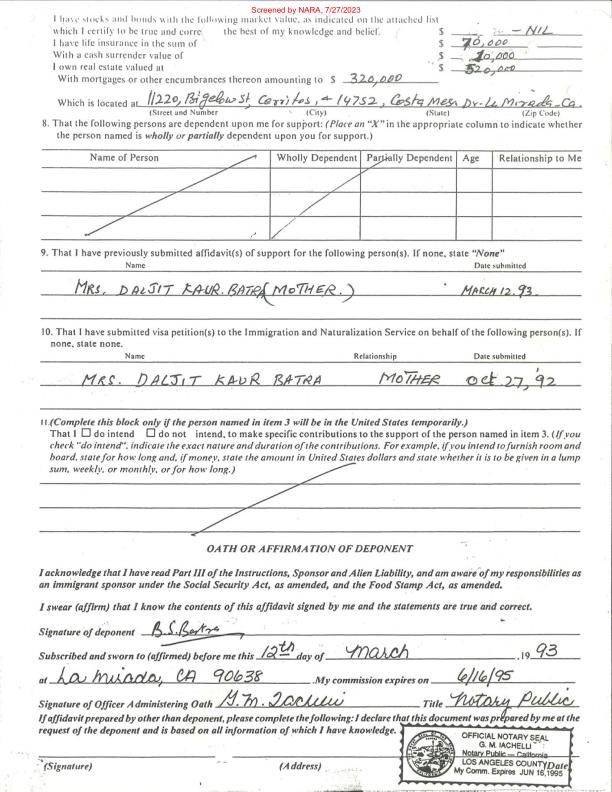 Screened by NARA, 7/27/2023
I have stocks and bonds with the following market value, as indicated on the attached list
which I certify to be true and corre the best of my knowledge and belief. $ - NIL
I have life insurance in the sum of $ 70,000
With a cash surrender value of $ 10,000
I own real estate valued at $ 520,000
With mortgages or other encumbrances thereon amounting to $ 320,000
Which is located at 11220, Bigelow St, Cerritos, & 14752, Costa Mesa Dr. La Mirada, Ca.
(Street and Number (City) (State) (Zip Code)
8. That the following persons are dependent upon me for support: (Place an "X" in the appropriate column to indicate whether
the person named is wholly or partially dependent upon you for support.)
Name of Person Wholly Dependent Partially Dependent Age Relationship to Me
9. That I have previously submitted affidavit(s) of support for the following person(s). If none, state "None"
Name Date submitted
MRS. DALJIT KAUR. BATRA (MOTHER.) MARCH 12. 93.
10. That I have submitted visa petition(s) to the Immigration and Naturalization Service on behalf of the following person(s). If
none, state none.
Name Relationship Date submitted
MRS. DALJIT KAUR BATRA MOTHER Oct 27, '92
11.(Complete this block only if the person named in item 3 will be in the United States temporarily.)
That I ☐ do intend ☐ do not intend, to make specific contributions to the support of the person named in item 3. (If you
check "do intend", indicate the exact nature and duration of the contributions. For example, if you intend to furnish room and
board, state for how long and, if money, state the amount in United States dollars and state whether it is to be given in a lump
sum, weekly, or monthly, or for how long.)
OATH OR AFFIRMATION OF DEPONENT
I acknowledge that I have read Part III of the Instructions, Sponsor and Alien Liability, and am aware of my responsibilities as
an immigrant sponsor under the Social Security Act, as amended, and the Food Stamp Act, as amended.
I swear (affirm) that I know the contents of this affidavit signed by me and the statements are true and correct.
Signature of deponent B.S. Batra
Subscribed and sworn to (affirmed) before me this 12th day of March , 19 93
at La Mirada, CA 90638 . My commission expires on 6/16/95
Signature of Officer Administering Oath G.M. Iachelli Title Notary Public
If affidavit prepared by other than deponent, please complete the following: I declare that this document was prepared by me at the
request of the deponent and is based on all information of which I have knowledge.
OFFICIAL NOTARY SEAL
G. M. IACHELLI
Notary Public — California
LOS ANGELES COUNTY
My Comm. Expires JUN 16,1995
(Signature) (Address) (Date)